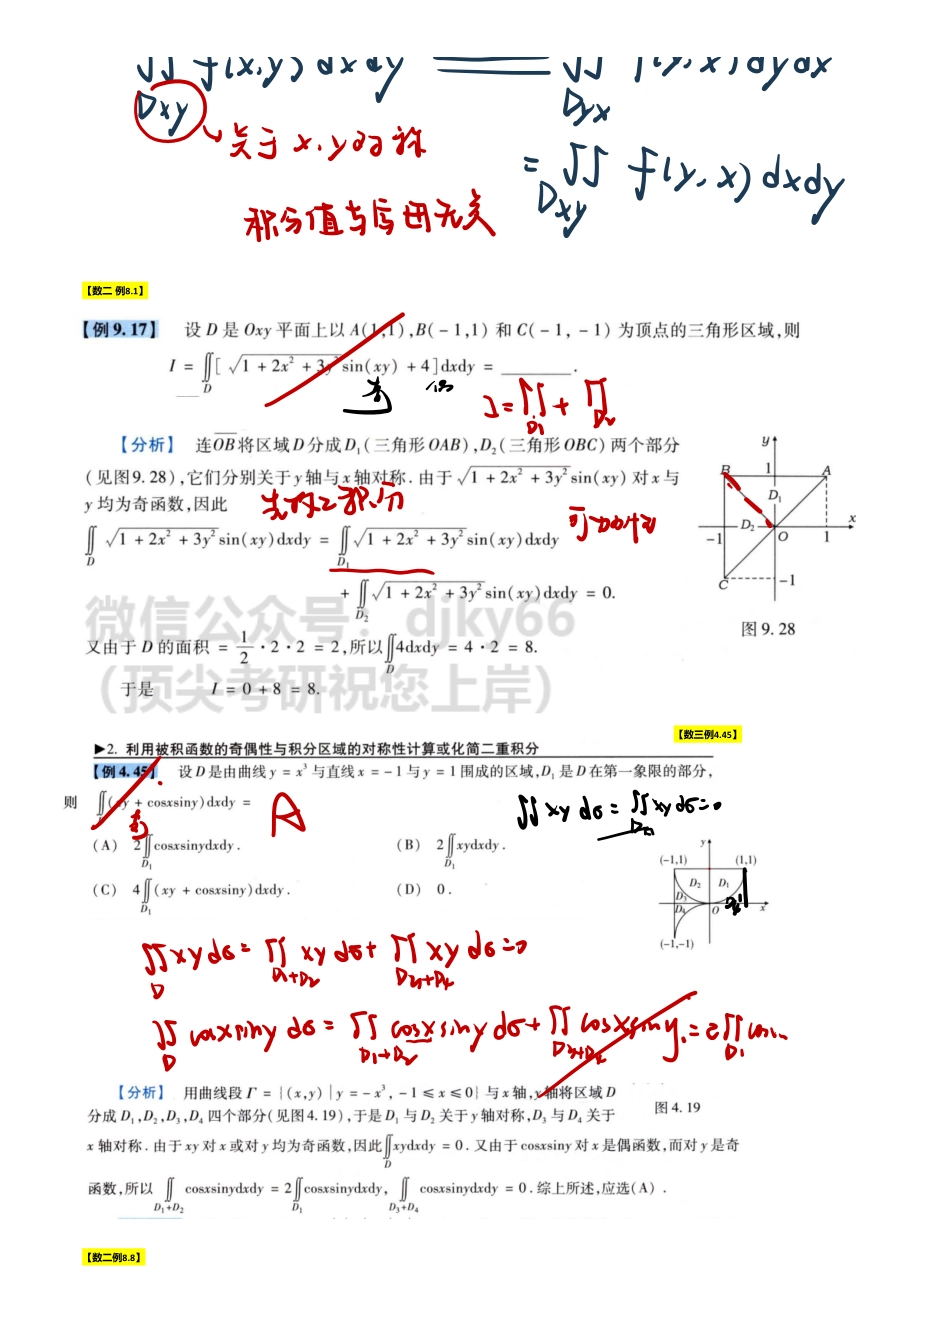 ∬ f(x,y) dxdy ══ ∬ f(y,x) dydx
Dxy Dyx
关于x,y对称
= ∬ f(y,x) dxdy
Dxy
积分值与字母无关
【数二 例8.1】
【例 9.17】 设 D 是 Oxy 平面上以 A(1,1),B(-1,1) 和 C(-1,-1) 为顶点的三角形区域,则
I = ∬_D [√(1+2x²+3y²) sin(xy) + 4]dxdy = ________.
奇 偶
I = ∬_{D₁} + ∬_{D₂}
【分析】 连OB将区域D分成D₁(三角形OAB),D₂(三角形OBC)两个部分
(见图9.28),它们分别关于y轴与x轴对称.由于√(1+2x²+3y²) sin(xy)对x与
y均为奇函数,因此
可加性
∬_D √(1+2x²+3y²) sin(xy)dxdy = ∬_{D₁} √(1+2x²+3y²) sin(xy)dxdy
+ ∬_{D₂} √(1+2x²+3y²) sin(xy)dxdy = 0.
y
B 1 A
D₁
D₂ x
-1 O 1
C -1
图 9.28
微信公众号：djky66
又由于 D 的面积 = 1/2 · 2 · 2 = 2,所以 ∬_D 4dxdy = 4 · 2 = 8.
（顶尖考研祝您上岸）
于是 I = 0 + 8 = 8.
【数三例4.45】
▶2. 利用被积函数的奇偶性与积分区域的对称性计算或化简二重积分
【例 4.45】 设 D 是由曲线 y = x³ 与直线 x = -1 与 y = 1 围成的区域,D₁ 是 D 在第一象限的部分,
则 ∬_D (xy + cosxsiny)dxdy =
A
奇
∬ xy dσ = ∬ xy dσ = 0
(A) 2∬_{D₁} cosxsinydxdy.
(B) 2∬_{D₁} xydxdy.
(C) 4∬_{D₁} (xy + cosxsiny)dxdy.
(D) 0.
y
(-1,1) (1,1)
D₂ D₁
D₃
D₄ O x
(-1,-1)
∬_D xy dσ = ∬_{D₁+D₂} xy dσ + ∬_{D₃+D₄} xy dσ = 0
∬_D cosxsiny dσ = ∬_{D₁+D₂} cosxsiny dσ + ∬_{D₃+D₄} cosxsiny = 2∬_{D₁}
【分析】 用曲线段 Γ = {(x,y) | y = -x³, -1 ≤ x ≤ 0} 与 x 轴,y 轴将区域 D
图 4.19
分成 D₁,D₂,D₃,D₄ 四个部分(见图4.19),于是 D₁ 与 D₂ 关于 y 轴对称,D₃ 与 D₄ 关于
x 轴对称.由于 xy 对 x 或对 y 均为奇函数,因此 ∬_D xydxdy = 0.又由于 cosxsiny 对 x 是偶函数,而对 y 是奇
函数,所以 ∬_{D₁+D₂} cosxsinydxdy = 2∬_{D₁} cosxsinydxdy, ∬_{D₃+D₄} cosxsinydxdy = 0.综上所述,应选(A).
【数二例8.8】